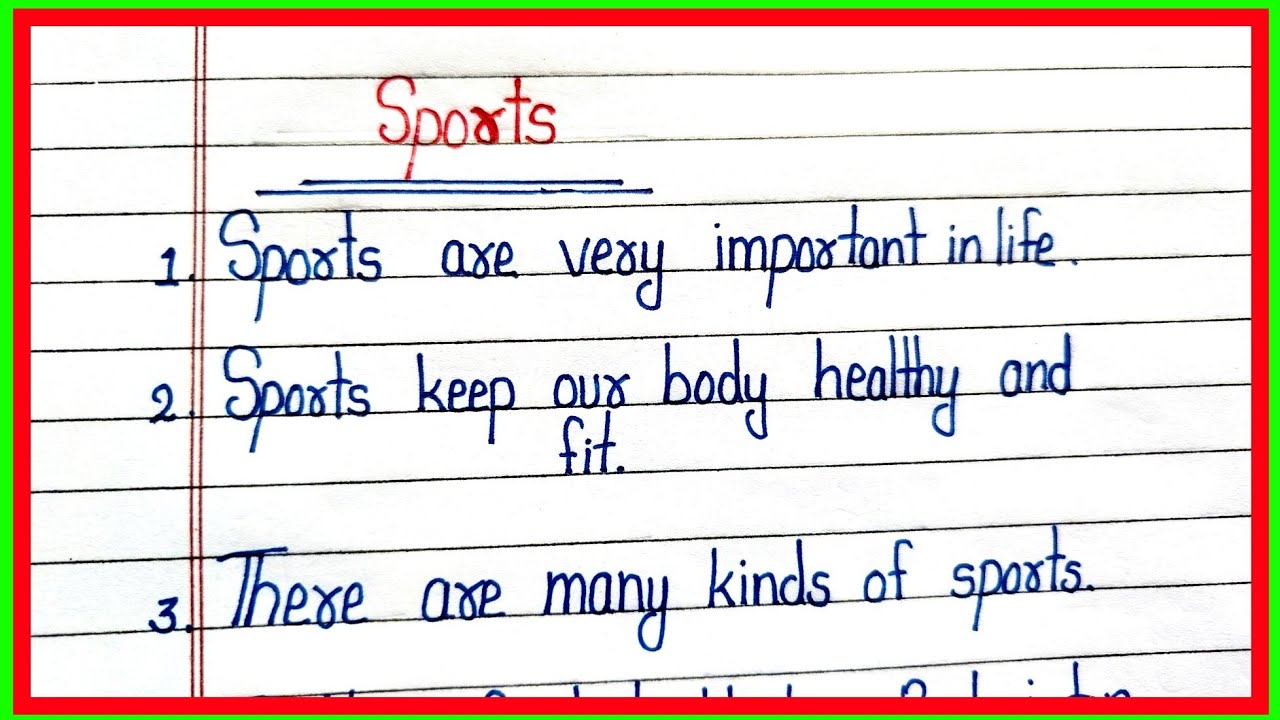 Sports
1. Sports are very important in life.
2. Sports keep our body healthy and
fit.
3. There are many kinds of sports.